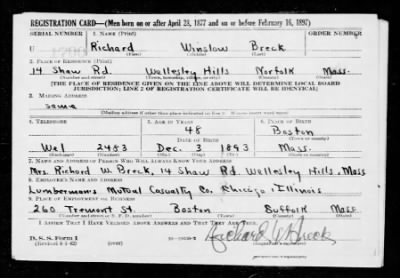 REGISTRATION CARD—(Men born on or after April 28, 1877 and on or before February 16, 1897)
SERIAL NUMBER 1. NAME (Print) ORDER NUMBER
U Richard Winslow Breck
(First) (Middle) (Last)
2. PLACE OF RESIDENCE (Print)
14 Shaw Rd. Wellesley Hills Norfolk Mass.
(Number and street) (Town, township, village, or city) (County) (State)
[THE PLACE OF RESIDENCE GIVEN ON THE LINE ABOVE WILL DETERMINE LOCAL BOARD
JURISDICTION; LINE 2 OF REGISTRATION CERTIFICATE WILL BE IDENTICAL]
3. MAILING ADDRESS
same
[Mailing address if other than place indicated on line 2. If same insert word same]
4. TELEPHONE 5. AGE IN YEARS 6. PLACE OF BIRTH
48 Boston
DATE OF BIRTH (Town or county)
Wel 2483 Dec. 3 1893 Mass.
(Exchange) (Number) (Mo.) (Day) (Yr.) (State or country)
7. NAME AND ADDRESS OF PERSON WHO WILL ALWAYS KNOW YOUR ADDRESS
Mrs. Richard W. Breck, 14 Shaw Rd. Wellesley Hills, Mass
8. EMPLOYER'S NAME AND ADDRESS
Lumbermans Mutual Casualty Co. Chicago Illinois.
9. PLACE OF EMPLOYMENT OR BUSINESS
260 Tremont St. Boston Suffolk Mass
(Number and street or R. F. D. number) (Town) (County) (State)
I AFFIRM THAT I HAVE VERIFIED ABOVE ANSWERS AND THAT THEY ARE TRUE.
D. S. S. Form 1 Richard W Breck
(Revised 4-1-42) (over) (Registrant's signature)